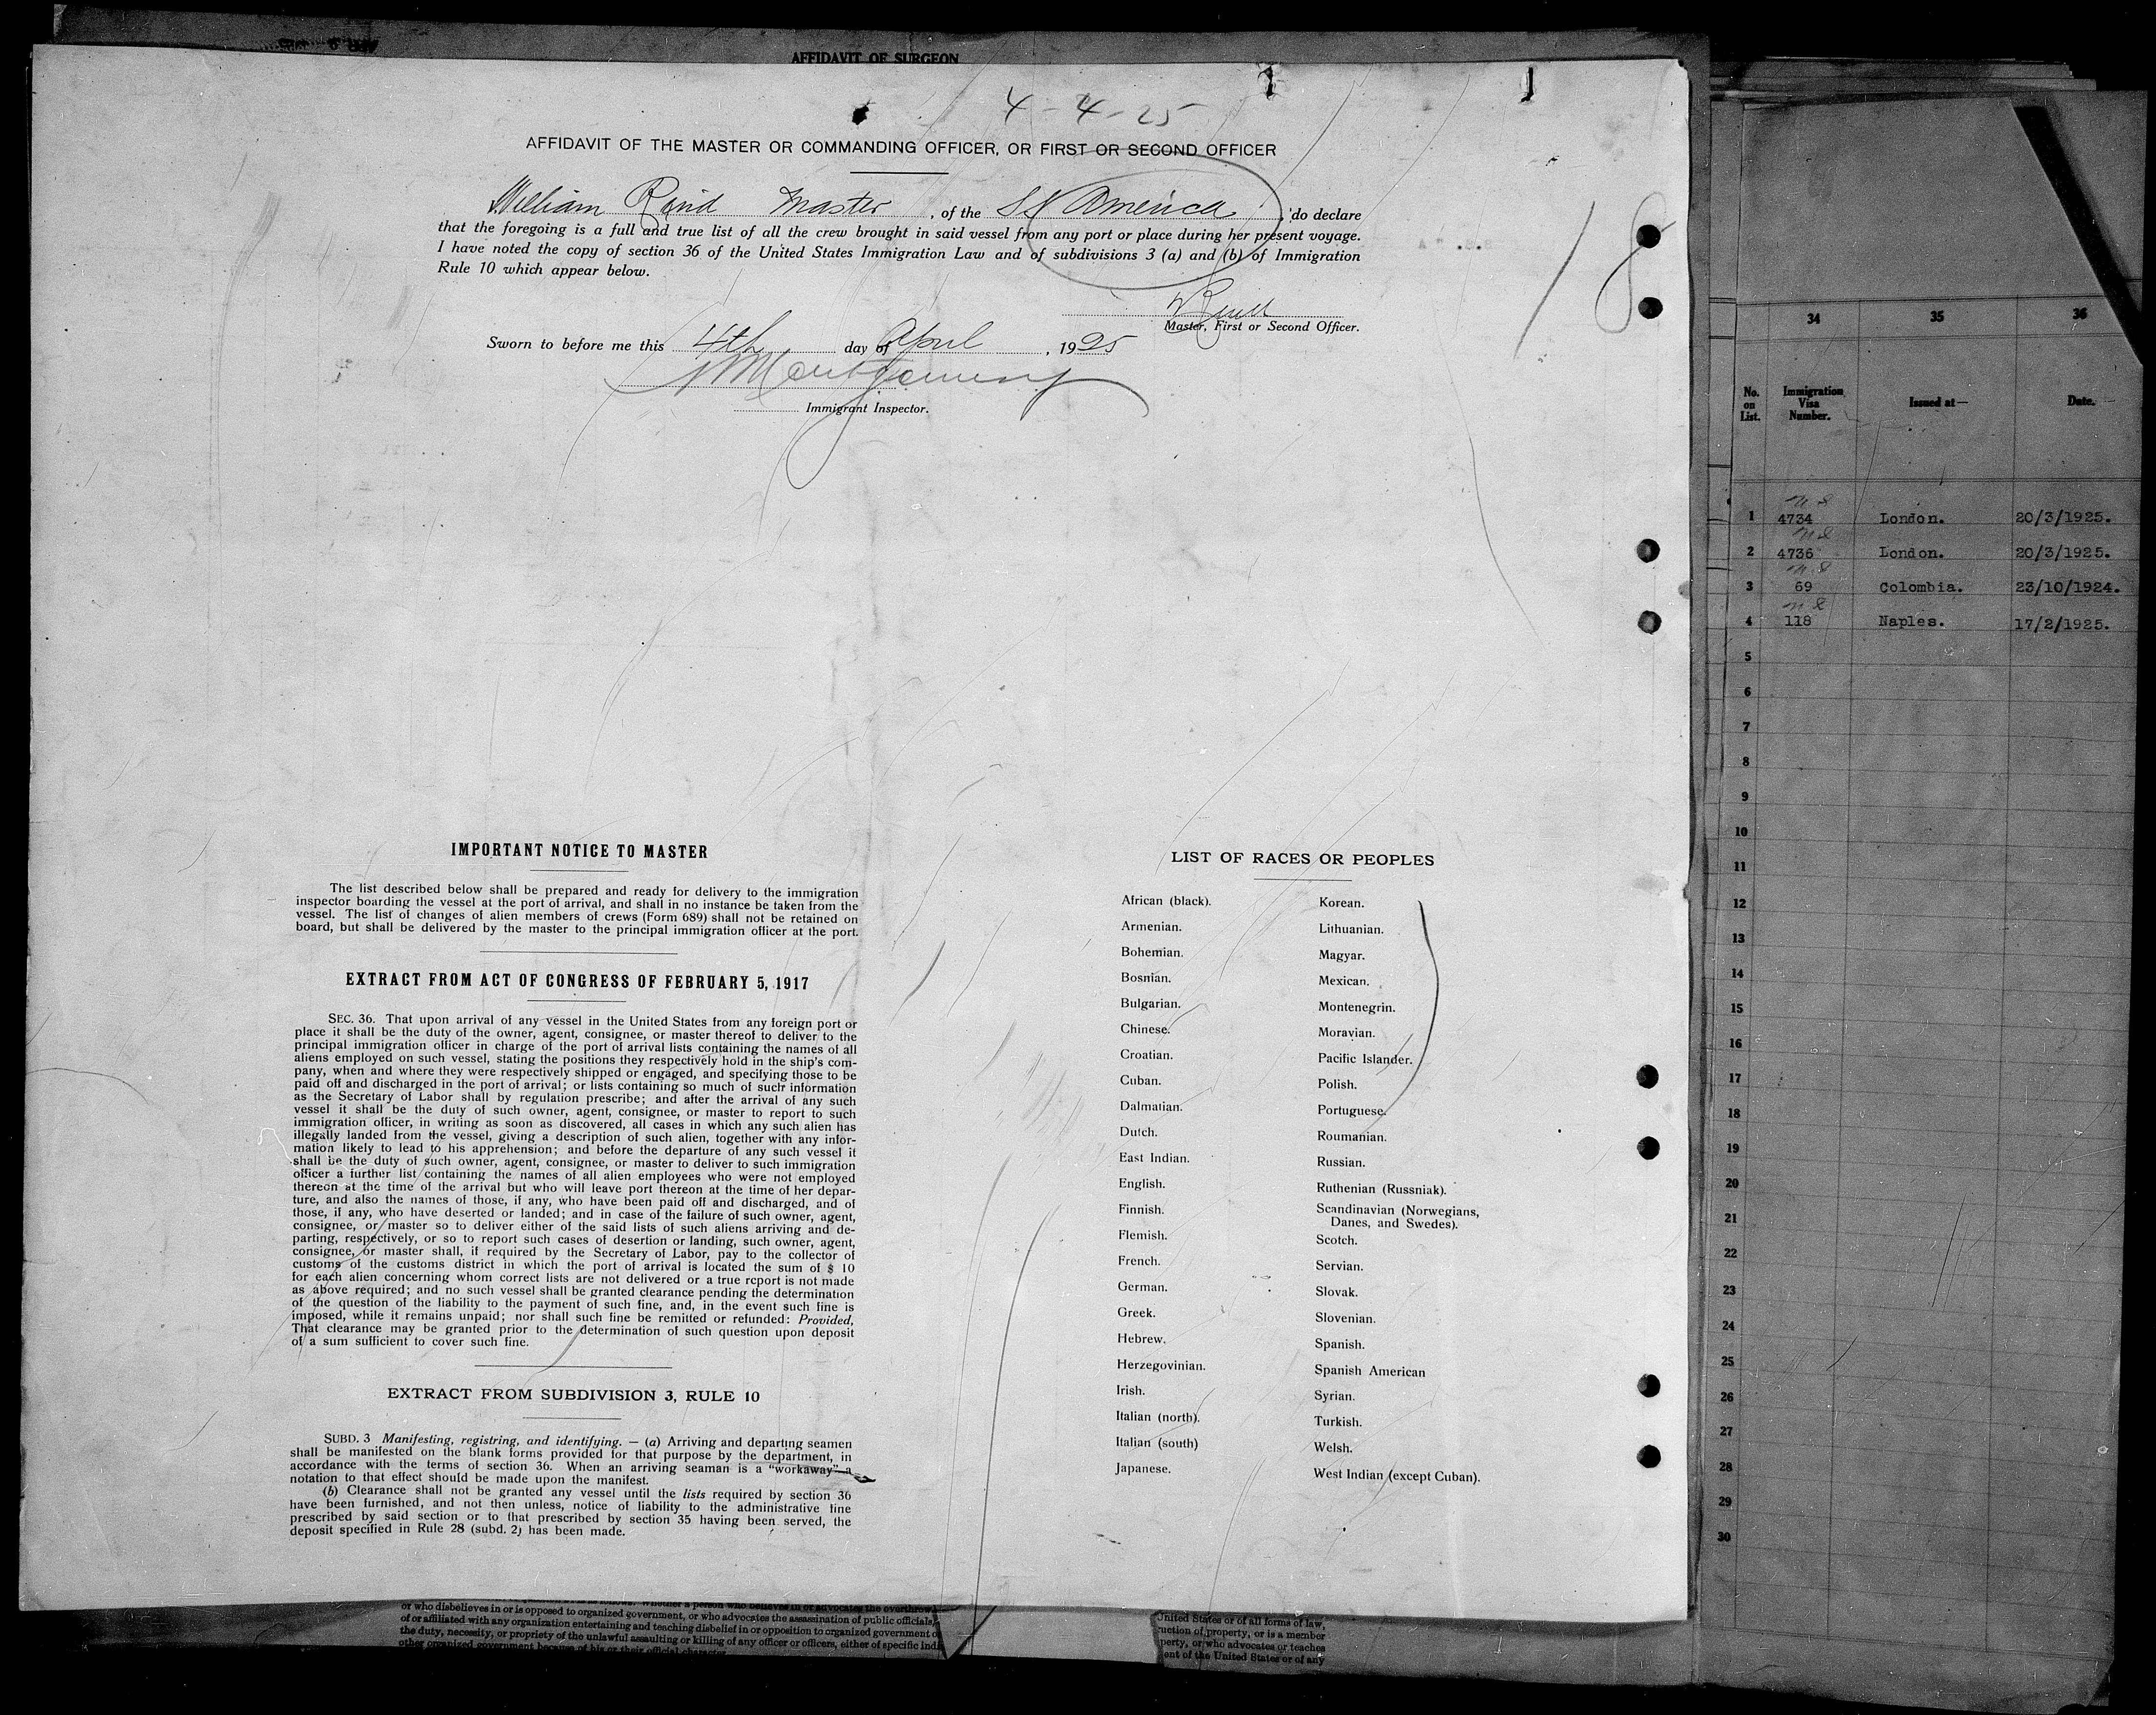 AFFIDAVIT OF SURGEON
4-4-25
AFFIDAVIT OF THE MASTER OR COMMANDING OFFICER, OR FIRST OR SECOND OFFICER
William Master, of the SS America, do declare
that the foregoing is a full and true list of all the crew brought in said vessel from any port or place during her present voyage.
I have noted the copy of section 36 of the United States Immigration Law and of subdivisions 3 (a) and (b) of Immigration
Rule 10 which appear below.
Master, First or Second Officer.
Sworn to before me this 4th day of April, 1925
Montgomery
Immigrant Inspector.
18
IMPORTANT NOTICE TO MASTER
The list described below shall be prepared and ready for delivery to the immigration
inspector boarding the vessel at the port of arrival, and shall in no instance be taken from the
vessel. The list of changes of alien members of crews (Form 689) shall not be retained on
board, but shall be delivered by the master to the principal immigration officer at the port.
EXTRACT FROM ACT OF CONGRESS OF FEBRUARY 5, 1917
SEC. 36. That upon arrival of any vessel in the United States from any foreign port or
place it shall be the duty of the owner, agent, consignee, or master thereof to deliver to the
principal immigration officer in charge of the port of arrival lists containing the names of all
aliens employed on such vessel, stating the positions they respectively hold in the ship's com-
pany, when and where they were respectively shipped or engaged, and specifying those to be
paid off and discharged in the port of arrival; or lists containing so much of such information
as the Secretary of Labor shall by regulation prescribe; and after the arrival of any such
vessel it shall be the duty of such owner, agent, consignee, or master to report to such
immigration officer, in writing as soon as discovered, all cases in which any such alien has
illegally landed from the vessel, giving a description of such alien, together with any infor-
mation likely to lead to his apprehension; and before the departure of any such vessel it
shall be the duty of such owner, agent, consignee, or master to deliver to such immigration
officer a further list containing the names of all alien employees who were not employed
thereon at the time of the arrival but who will leave port thereon at the time of her depar-
ture, and also the names of those, if any, who have been paid off and discharged, and of
those, if any, who have deserted or landed; and in case of the failure of such owner, agent,
consignee, or master so to deliver either of the said lists of such aliens arriving and de-
parting, respectively, or so to report such cases of desertion or landing, such owner, agent,
consignee, or master shall, if required by the Secretary of Labor, pay to the collector of
customs of the customs district in which the port of arrival is located the sum of $ 10
for each alien concerning whom correct lists are not delivered or a true report is not made
as above required; and no such vessel shall be granted clearance pending the determination
of the question of the liability to the payment of such fine, and, in the event such fine is
imposed, while it remains unpaid; nor shall such fine be remitted or refunded: Provided,
That clearance may be granted prior to the determination of such question upon deposit
of a sum sufficient to cover such fine.
EXTRACT FROM SUBDIVISION 3, RULE 10
SUBD. 3 Manifesting, registring, and identifying. — (a) Arriving and departing seamen
shall be manifested on the blank forms provided for that purpose by the department, in
accordance with the terms of section 36. When an arriving seaman is a "workaway" a
notation to that effect should be made upon the manifest.
(b) Clearance shall not be granted any vessel until the lists required by section 36
have been furnished, and not then unless, notice of liability to the administrative fine
prescribed by said section or to that prescribed by section 35 having been served, the
deposit specified in Rule 28 (subd. 2) has been made.
LIST OF RACES OR PEOPLES
African (black).
Armenian.
Bohemian.
Bosnian.
Bulgarian.
Chinese.
Croatian.
Cuban.
Dalmatian.
Dutch.
East Indian.
English.
Finnish.
Flemish.
French.
German.
Greek.
Hebrew.
Herzegovinian.
Irish.
Italian (north).
Italian (south)
Japanese.
Korean.
Lithuanian.
Magyar.
Mexican.
Montenegrin.
Moravian.
Pacific Islander.
Polish.
Portuguese.
Roumanian.
Russian.
Ruthenian (Russniak).
Scandinavian (Norwegians,
Danes, and Swedes).
Scotch.
Servian.
Slovak.
Slovenian.
Spanish.
Spanish American
Syrian.
Turkish.
Welsh.
West Indian (except Cuban).
or who disbelieves in or is opposed to organized government, or who advocates the assassination of public officials,
of or affiliated with any organization entertaining and teaching disbelief in or opposition to organized government o
the duty, necessity, or propriety of the unlawful assaulting or killing of any officer or officers, either of specific indi
other organized government because of his or their official character
United States or of all forms of law,
uction of property, or is a member
perty, or who advocates or teaches
ent of the United States or of any
34 35 36
No. on List. Immigration Visa Number. Issued at— Date.
1 4734 London. 20/3/1925.
2 4736 London. 20/3/1925.
3 69 Colombia. 23/10/1924.
4 118 Naples. 17/2/1925.
5
6
7
8
9
10
11
12
13
14
15
16
17
18
19
20
21
22
23
24
25
26
27
28
29
30